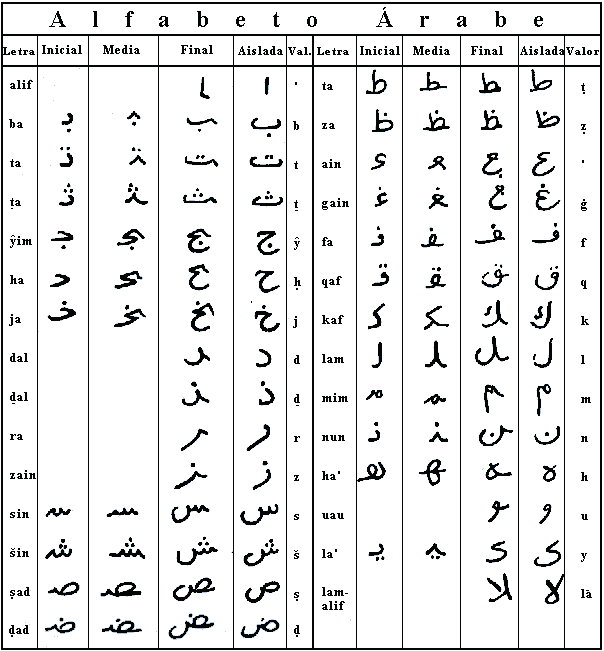 Alfabeto Árabe
Letra Inicial Media Final Aislada Val. Letra Inicial Media Final Aislada Valor
alif ـا ا ' ta طـ ـطـ ـط ط ṭ
ba بـ ـبـ ـب ب b za ظـ ـظـ ـظ ظ ẓ
ta تـ ـتـ ـت ت t ain عـ ـعـ ـع ع '
ṯa ثـ ـثـ ـث ث ṯ gain غـ ـغـ ـغ غ ġ
ŷim جـ ـجـ ـج ج ŷ fa فـ ـفـ ـف ف f
ha حـ ـحـ ـح ح ḥ qaf قـ ـقـ ـق ق q
ja خـ ـخـ ـخ خ j kaf كـ ـكـ ـك ك k
dal ـد د d lam لـ ـلـ ـل ل l
ḏal ـذ ذ ḏ mim مـ ـمـ ـم م m
ra ـر ر r nun نـ ـنـ ـن ن n
zain ـز ز z ha' هـ ـهـ ـه ه h
sin سـ ـسـ ـس س s uau ـو و u
šin شـ ـشـ ـش ش š la' يـ ـيـ ـى ى y
ṣad صـ ـصـ ـص ص ṣ lam-alif ـلا لا là
ḍad ضـ ـضـ ـض ض ḍ